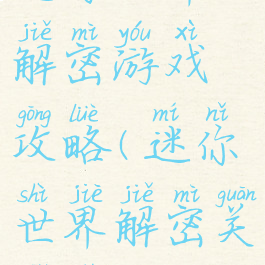 jiě mì yóu xì
解密游戏
gōng lüè mí nǐ
攻略(迷你
shì jiē jiě mì guān
世界解密关